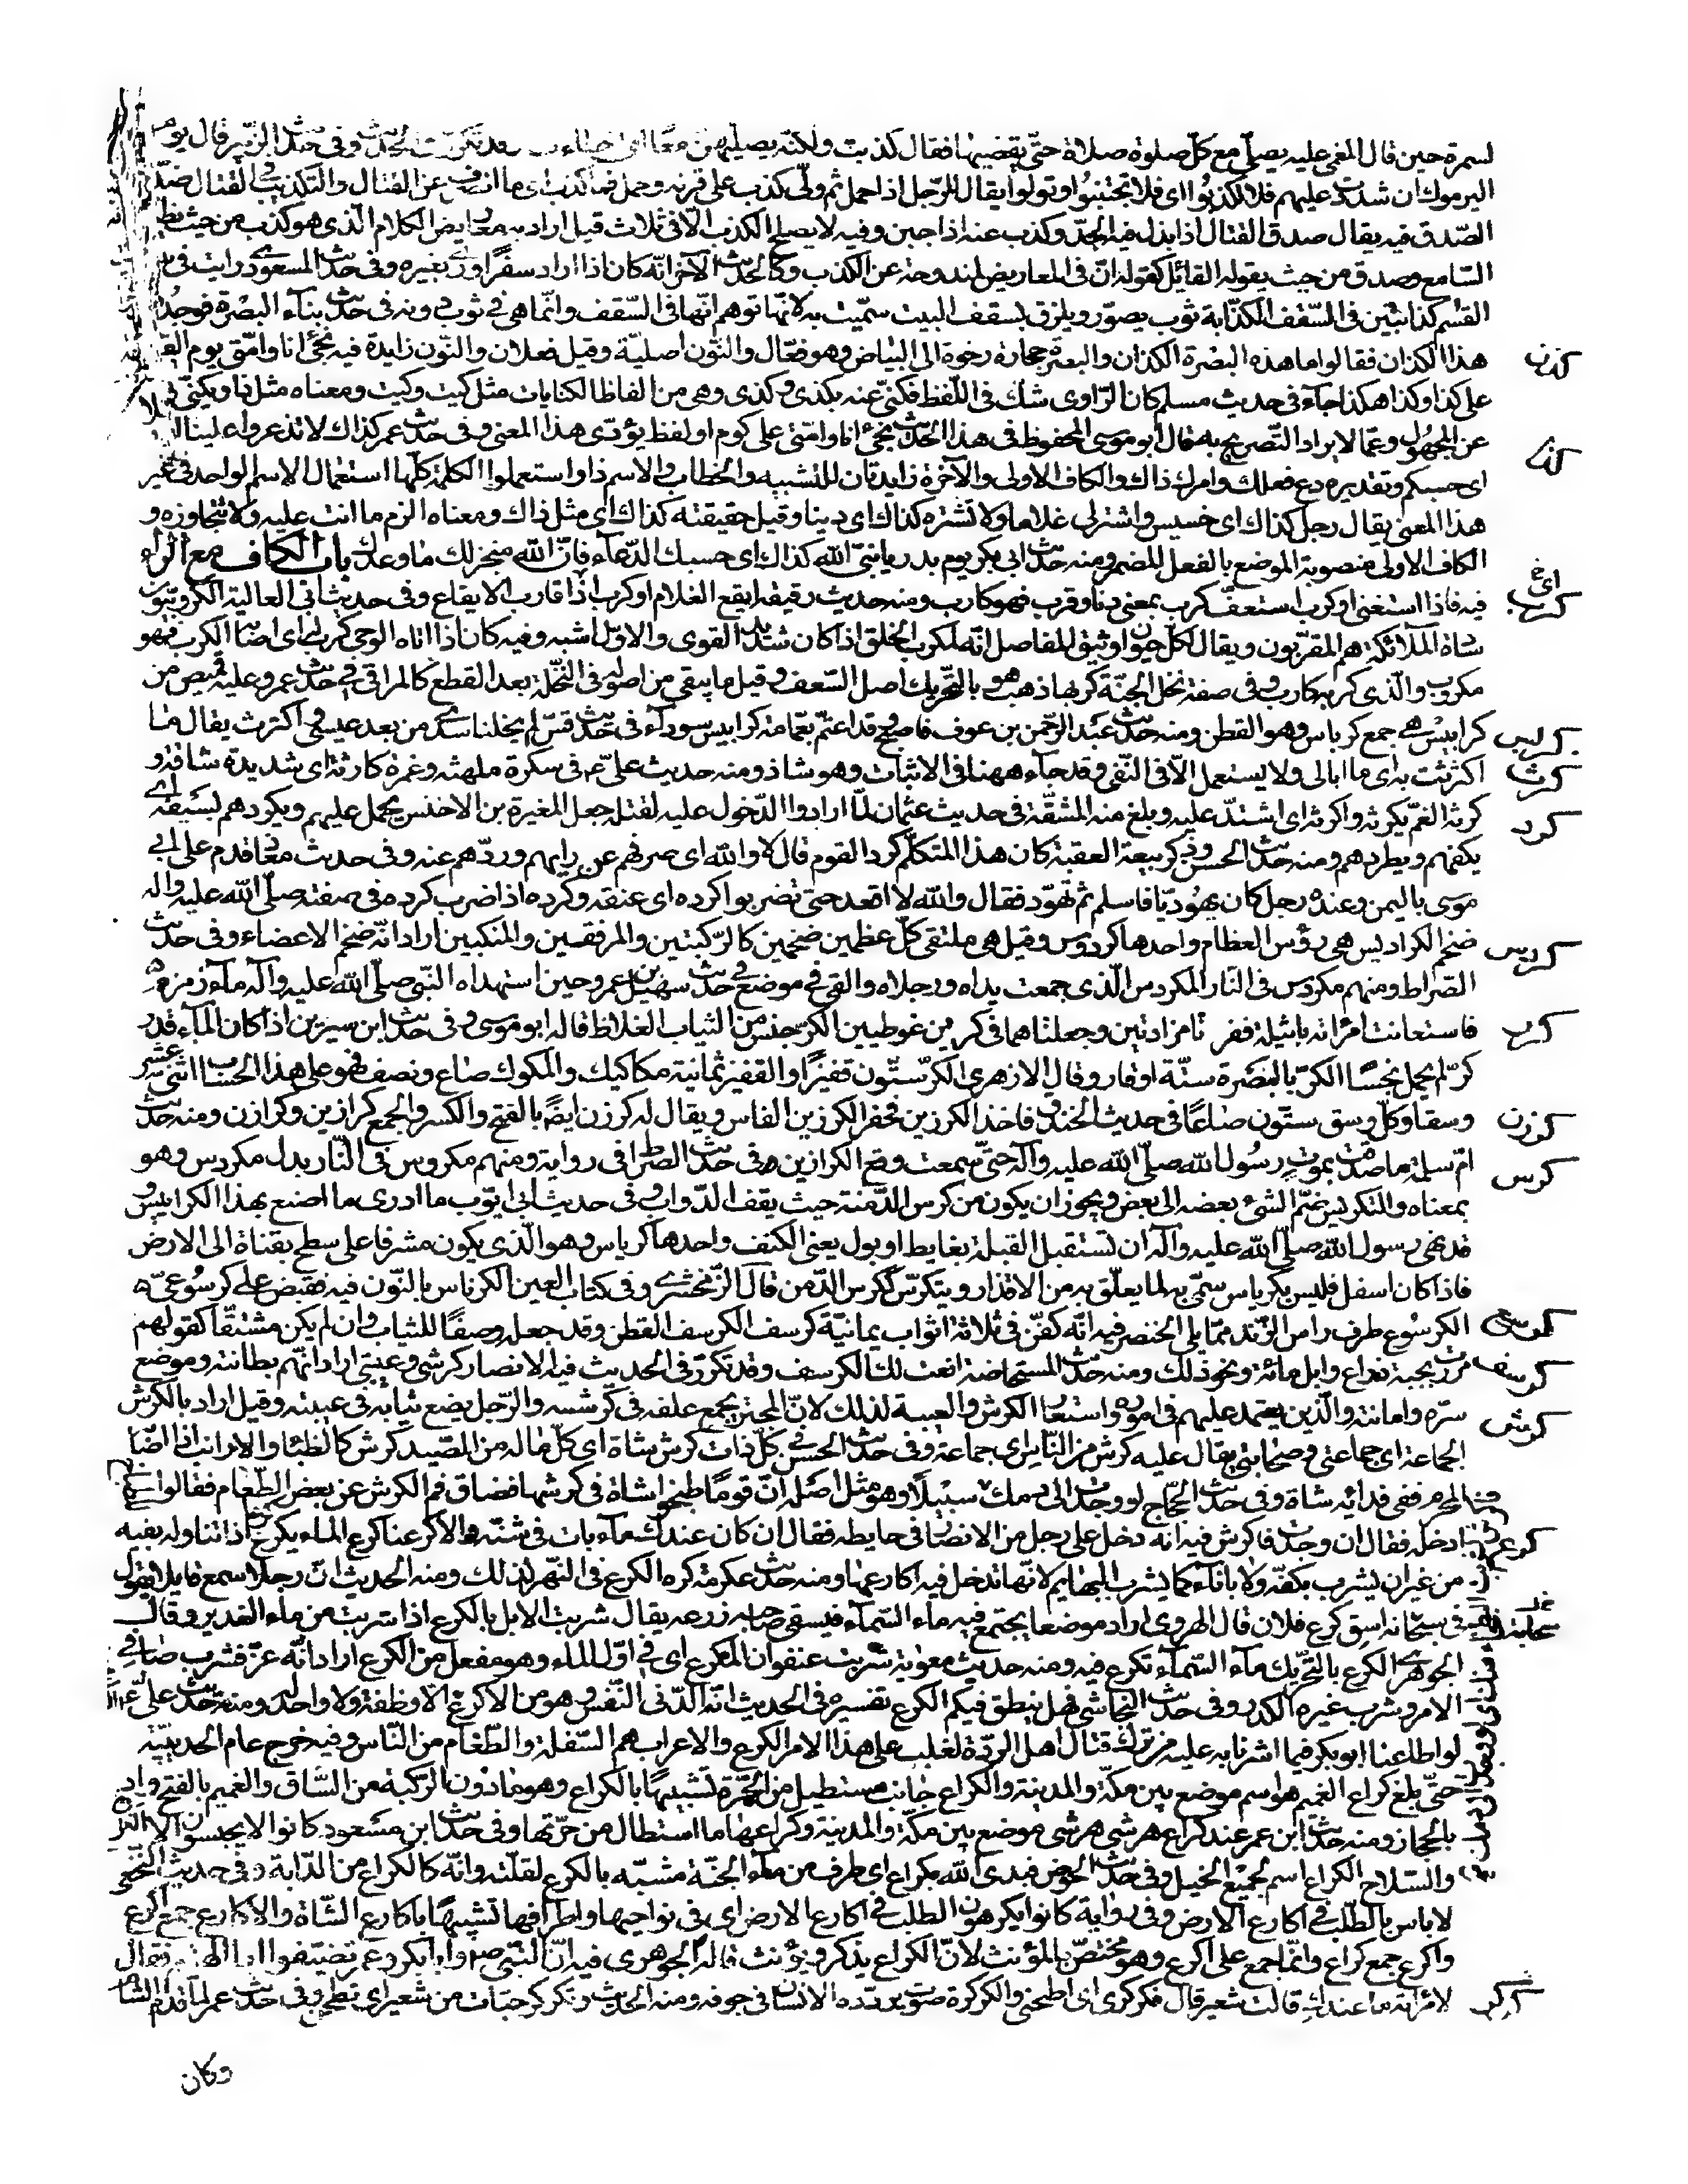 لسمرة حين قال المغمى عليه يصلّى مع كلّ صلوة صلاة حتّى يقضيها فقال كذبت ولكنّه يصلّيهنّ معًا اى اخطاءت وقد تكرّرت فى الحديث وفى حديث الزّبير قال يوم
اليرموك ان شددت عليهم فلا تكذبُوا اى فلا تجتنبُوا وتولوا يقال للرّجل اذا حمل ثم ولّى كذب على قرنه وحمل فما كذب اى ما انصرف عن القتال والتّكذيب فى القتال ضدّ
الصّدق فيه يقال صدق القتال اذا بذل فيه الجدّ وكذب عنه اذا جبن وفيه لا يصلح الكذب الّا فى ثلاث قيل اراد به معاريض الكلام الّذى هو كذب من حيث يظ
السّامع وصدق من حيث يقوله القائل كقوله انّ فى المعاريض لمندوحة عن الكذب وكالحديث الآخر انّه كان اذا اراد سفرًا ورّى بغيره وفى حديث المسعودى رايت فى
القسم كذّابتين فى السّقف الكذّابة ثوب يصوّر ويلزق بسقف البيت سمّيت به لانّها توهم انّها فى السّقف وانّما هى فى ثوب دونه فى حديث بناء البصرة فوجدُ
كذن
هذا الكذّان فقالوا ما هذه البصْرة الكذّان والبصرة حجارة رخوة الى البياض وهو فعّال والنّون اصليّة وقيل فعلان والنّون زايدة فيه نجئ انا وامّتى يوم القيا
على كذا وكذا هكذا جآء فى حديث مسلم كان الرّاوى شك فى اللّفظ فكنىّ عنه بكذى وكذى وهى من الفاظ الكنايات مثل كيت وكيت ومعناه مثل ذا ويكنىّ
كذا
عن المجهُول وعمّا لا يراد التّصريح به قال ابو موسى المحفوظ فى هذا الحديث نجئ انا وامّتى على كوم او لفظ يؤدّى هذا المعنى وفى حديث عمر كذاك لا تذعروا علينا
اى حسبكم وتقديره دع فعلك وامرك ذاك والكاف الاولى والآخرة زايدتان للتشبيه والخطاب والاسم ذا واستعملوا الكلمة كلّها استعمال الاسم الواحد فى غير
هذا المعنى يقال رجل كذاك اى خسيس واشتر لى غلاما ولا تشتره كذاك اى دنيا وقيل حقيقته كذاك اى مثل ذاك ومعناه الزم ما انت عليه ولا تتجاوزه و
الكاف الاولى منصوبة الموضع بالفعل المضمر ومنه حديث ابى بكر يوم بدر يا نبىّ الله كذاك اى حسبك الدّعآء فانّ الله منجز لك ما وعدك باب الكاف مع الراء
كرب
فيه فاذا استغنى او كرب استعفّ كرب بمعنى دنا وقرب فهو كارب ومنه حديث رقيقة ايفع الغلام او كرب اذا قارب الايفاع وفى حديث ابى العالية الكروبيّون
سادة الملائكة هم المقرّبون ويقال لكلّ حيوان وثيق المفاصل انّه لمكرب الخلق اذا كان شديد القوى والاوّل اشبه وفيه كان اذا اتاه الوحى كرب له اى اصابه الكرب فهو
مكروب والّذى كربه كارب وفى صفة نخل الجنّة كربها ذهب هو بالتّحريك اصل السّعف وقيل ما يبقى من اصوله فى النّخلة بعد القطع كالمراقى فى حديث عمر وعليه قميص من
كربس
كرابيس هى جمع كرباس وهو القطن ومنه حديث عبد الرّحمن بن عوف فاصبح وقد اعتمّ بعمّامة كرابيس سودآء فى حديث قسّ لم يخلنا سدى من بعد عيسى واكترث يقال ما
كرث
اكترثت به اى ما ابالى ولا يستعمل الّا فى النّفى وقد جآء ههنا فى الاثبات وهو شاذ ومنه حديث علىّ ع فى سكرة ملهثة وغمرة كارثة اى شديدة شاقة و
كرثه الغمّ يكرثه واكرثه اى اشتدّ عليه وبلغ منه المشقّة فى حديث عثمان لمّا ارادوا الدّخول عليه لقتله جعل المغيرة بن الاخنس يحمل عليهم ويكردهم بسيفه اى
كرد
يكفهم ويطردهم ومنه حديث الحسن وذكر بيعة العقبة كان هذا المتكلّم كرد القوم قال لا والله اى صرفهم عن رايهم وردّهم عنه وفى حديث معاذ قدم على ابى
موسى باليمن وعنده رجل كان يهُوديّا فاسلم ثم تهوّد فقال والله لا اقعد حتى تضربوا كرده اى عنقه وكرده اذا ضرب كرده فى صفته صلّى الله عليه واله
كردس
ضخم الكراديس هى رؤس العظام واحدها كردوس وقيل هى ملتقى كلّ عظمين ضخمين كالرّكبتين والمرفقين والمنكبين اراد انّه ضخم الاعضاء وفى حديث
الصّراط ومنهم مكردس فى النّار المكردس الّذى جمعت يداه ورجلاه والقى فى موضع فى حديث سهيل بن عمرو حين استهداه النّبى صلّى الله عليه وآله مآء زمزم
كرر
فاستعانت امرأته باثيلة ففر تا مزادتين وجعلتاهما فى كرين غوطيين الكرّ جنس من الثياب الغلاظ قاله ابو موسى وفى حديث ابن سيرين اذا كان المآء قدر
كرّ لم يحمل نجسًا الكرّ بالبصرة ستّة اوقار وقال الازهرى الكرّ ستّون قفيزًا والقفيز ثمانية مكاكيك والمكوك صاع ونصف فهو على هذا الحساب اثنى عشر
كرزن
وسقا وكلّ وسق ستّون صاعًا فى حديث الخندق فاخذ الكرزين فحفر الكرزين الفاس ويقال له كرزن ايضًا بالفتح والكسر والجمع كرازين وكرازن ومنه حديث
كرس
امّ سلمة ما صدّقت بموت رسُول الله صلّى الله عليه وآله حتّى سمعت وقع الكرازين وفى حديث الصراط فى رواية ومنهم مكروس فى النّار بدل مكردس وهو
بمعناه والتكريس ضمّ الشئ بعضه الى بعض ويجوز ان يكون من كرس الدّمنة حيث يقف الدّواب وفى حديث ابى ايّوب ما ادرى ما اصنع بهذا الكراييس و
قد نهى رسول الله صلى الله عليه وآله ان تستقبل القبلة بغايط او بول يعنى الكنف واحدها كرياس وهو الّذى يكون مشرفا على سطح بقناة الى الارض
فاذا كان اسفل فليس بكرياس سمّى به لما يعلّق به من الاقذار ويتكرّس ككرس الدّمن قال الزّمخشرى وفى كتاب العين الكرناس بالنّون فيه فقبض على كرسُوعى
كرسع
الكرسُوع طرف راس الزّند ممّا يلى الخنصر فيه انّه كفّن فى ثلاثة اثواب يمانيّة كرسف الكرسف القطن وقد جعله وصفًا للثياب وان لم يكن مشتقّا كقولهم
كرسف
مررت بحيّة ذراع وابل مائة ونحو ذلك ومنه حديث المستحاضة انعت لك الكرسف وقد تكرّر فى الحديث فيه الانصار كرشى وعيبتى اراد انّهم بطانته وموضع
كرش
سرّه وامانته والّذين يعتمد عليهم فى اموره واستعار الكرش والعيبة لذلك لانّ المجتر يجمع علفه فى كرشه والرّجل يضع ثيابه فى عيبته وقيل اراد بالكرش
الجماعة اى جماعتى وصحابتى يقال عليه كرش من النّاس اى جماعة وفى حديث الحسن فى كلّ ذات كرش شاة اى كلّ ما له من الصّيد كرش كالظباء والارانب اذا اصا
المحرم ففى فدائه شاة وفى حديث الحجّاج لو وجدت الى دمك سبيلًا وهو مثل اصله انّ قومًا طبخوا شاة فى كرشها فضاق فم الكرش عن بعض الطّعام فقالوا
كرع
ادخله فقال ان وجدت فاكرش فيه انه دخل على رجل من الانصار فى حايطه فقال ان كان عندك مآء بات فى شنّة والّا كرعنا كرع الماء يكرع اذا تناوله بفيه
من غير ان يشرب بكفّه ولا باناء كما يشرب البهايم لانّها تدخل فيه اكارعها ومنه حديث عكرمة كره الكرع فى النّهر لذلك ومنه الحديث انّ رجلا سمع قايلا يقول
سحابة
فى سحابة اسق كرع فلان قال الهروى اراد موضعا يجتمع فيه ماء السّماء فيسقى صاحبه زرعه يقال شربت الابل بالكرع اذا شربت من ماء الغدير وقال
الجوهرى الكرع بالتّحريك مآء السّمآء تكرع فيه ومنه حديث معوية شربت عنفوان المكرع اى فى اوّل الماء وهو مفعل من الكرع اراد انّه عزّ فشرب صافى
الامر وشرب غيره الكدر وفى حديث النجاشى فهل ينطق فيكم الكرع تفسيره فى الحديث انّه الدّنى النّفس وهو من الاكرع الاوظفة ولا واحد له ومنه حديث علىّ ع
لو اطاعنا ابو بكر فيما اشرنا به عليه من ترك قتال اهل الرّدة لغلب على هذا الامر الكرع والاعراب هم السّفلة والطّغام من النّاس وفيه خرج عام الحديبيّة
حتّى بلغ كراع الغميم هو اسم موضع بين مكّة والمدينة والكراع جانب مستطيل من الحرّة تشبيهًا بالكراع وهو ما دون الركبة من السّاق والغميم بالفتح واد
بالحجاز ومنه حديث ابن عمر عند كراع هرشى هرشى موضع بين مكّة والمدينة وكراعها ما استطال من حرّتها وفى حديث ابن مسعود كانوا لا يحبسون الا الكراع
والسّلاح الكراع اسم لجميع الخيل وفى حديث الحوض فبدى الله بكراع اى طرف من مآء الجنّة مشبّه بالكرع لقلّته وانّه كالكراع من الدّابة وفى حديث النخعى
لا باس بالطّلب فى اكارع الارض وفى رواية كانوا يكرهون الطلب فى اكارع الارض اى فى نواحيها واطرافها تشبيهًا باكارع الشّاة والاكارع جمع اكرع
واكرع جمع كراع وانّما جمع على اكرع وهو مختصّ بالمؤنث لانّ الكراع يذكر ويؤنث قاله الجوهرى فيه انّ النّبىّ ص وابا بكر وعمر تضيّفوا ابا الهيثم فقال
كركر
لامرأته ما عندك قالت شعير قال فكركرى اى اطحنى والكركرة صوت يردّده الانسان فى جوفه ومنه الحديث وتكركر حبّات من شعير اى تطحن وفى حديث عمر لمّا قدم الشام
وكان